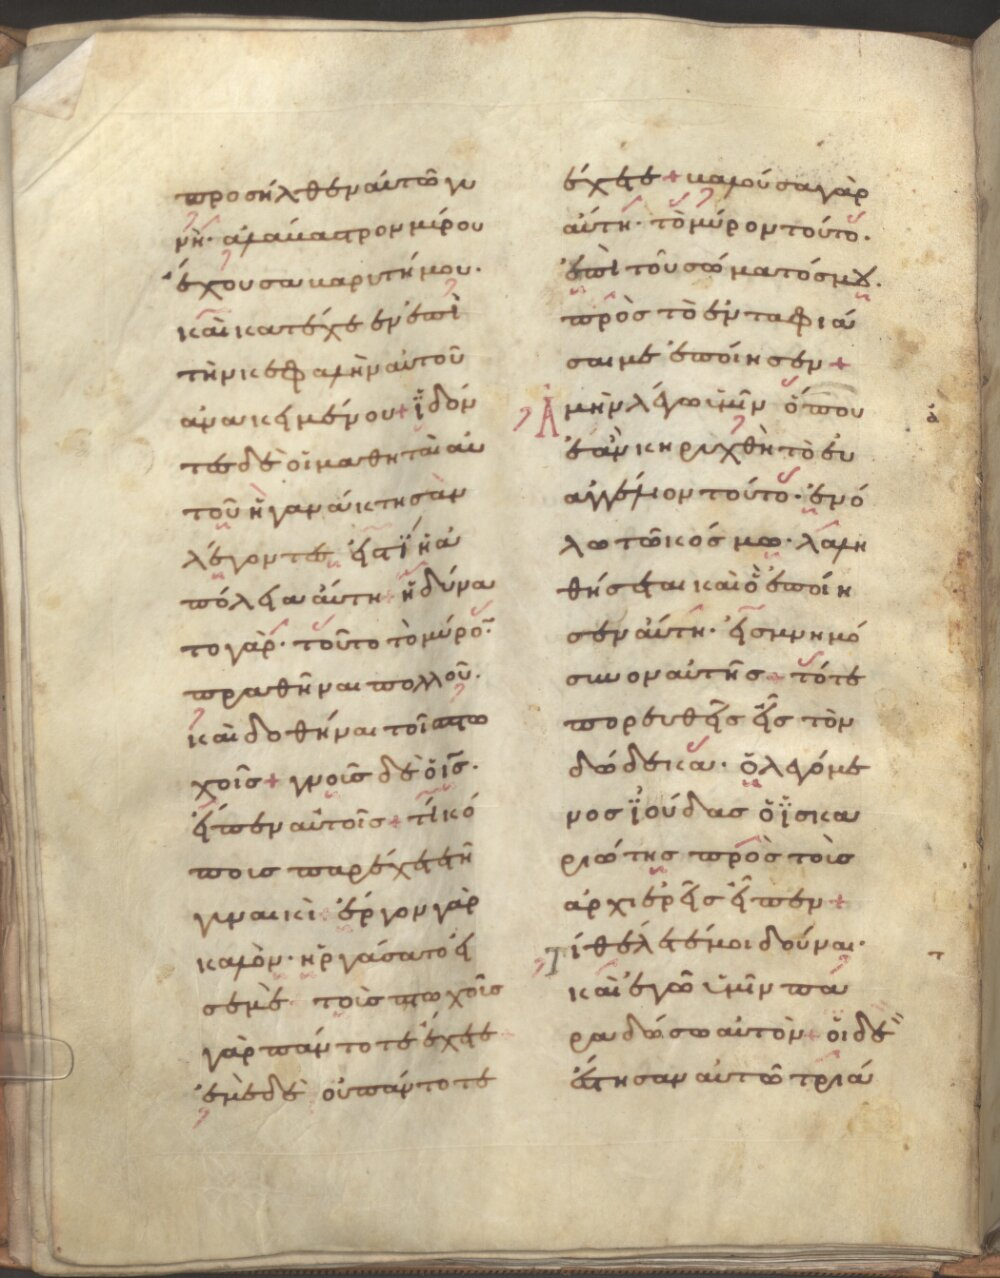 προσῆλθεν αὐτῶ γυ
νὴ· ἀλάβαστρον μύρου
ἔχουσα βαρυτίμου·
καὶ κατέχεεν ἐπὶ
τὴν κεφαλὴν αὐτοῦ
ἀνακειμένου + ἰδόν
τες δὲ οἱ μαθηταὶ αὐ
τοῦ ἠγανάκτησὰν
λέγοντες εἰς τί ἡ ἀ
πώλεια αὕτη + ἠδύνα
το γὰρ· τοῦτο τὸ μύρον·
πραθῆναι πολλοῦ·
καὶ δοθῆναι τοῖς πτω
χοῖς + γνοὺς δὲ ὁ ις·
εἶπεν αὐτοῖς + τί κό
πους παρέχετε τῆ
γυναικὶ + ἔργον γὰρ
καλὸν· ἠργάσατο εἰ
σεμὲ· τοὺς πτωχοὺς
γὰρ πάντοτε ἔχετε +
ἐμὲ δὲ οὐ πάντοτε
ἔχετε + βαλοῦσα γὰρ
αὕτη· τὸ μύρον τοῦτο·
ἐπὶ τοῦ σώματός μου·
πρὸς τὸ ἐνταφιά
σαι με ἐποίησεν +
Ἀμὴν λέγω ὑμῖν ὅπου
ἐὰν κηρυχθῆ τὸ εὐ
αγγέλιον τοῦτο· ἐν ὅ
λω τῶ κόσμω· λαλη
θήσεται καὶ ὃ ἐποίη
σεν αὕτη· εἰς μνημό
συνον αὐτῆς + τότε
πορευθεὶς εἷς τῶν
δώδεκα· ὁ λεγόμε
νος ἰούδας ὁ ἰσκα
ριώτης πρὸς τοὺς
ἀρχιερεῖς εἶπεν +
Τί θέλετέ μοι δοῦναι·
καὶ ἐγὼ ὑμῖν πα
ραδώσω αὐτὸν + οἱ δὲ
ἔστησαν αὐτῶ τριά